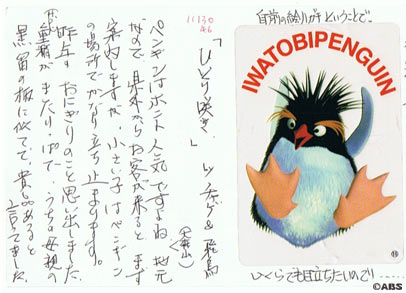 自前の絵ハガキということで…
IWATOBIPENGUIN
いくらでも目立ちたいので!……
©ABS
「ひとり咲き」 チャゲ&飛鳥
ペンギンはホント人気ですよね 地元
なので、県外からお客が来ると まず
案内しますが、小さい子はペンギン
の場所でかなり立ち止まります。
昨年の おにぎりのこと思い出しました
がまたリッパで、うちの母親の
黒留の板に似てて、貴品あると
言ってました